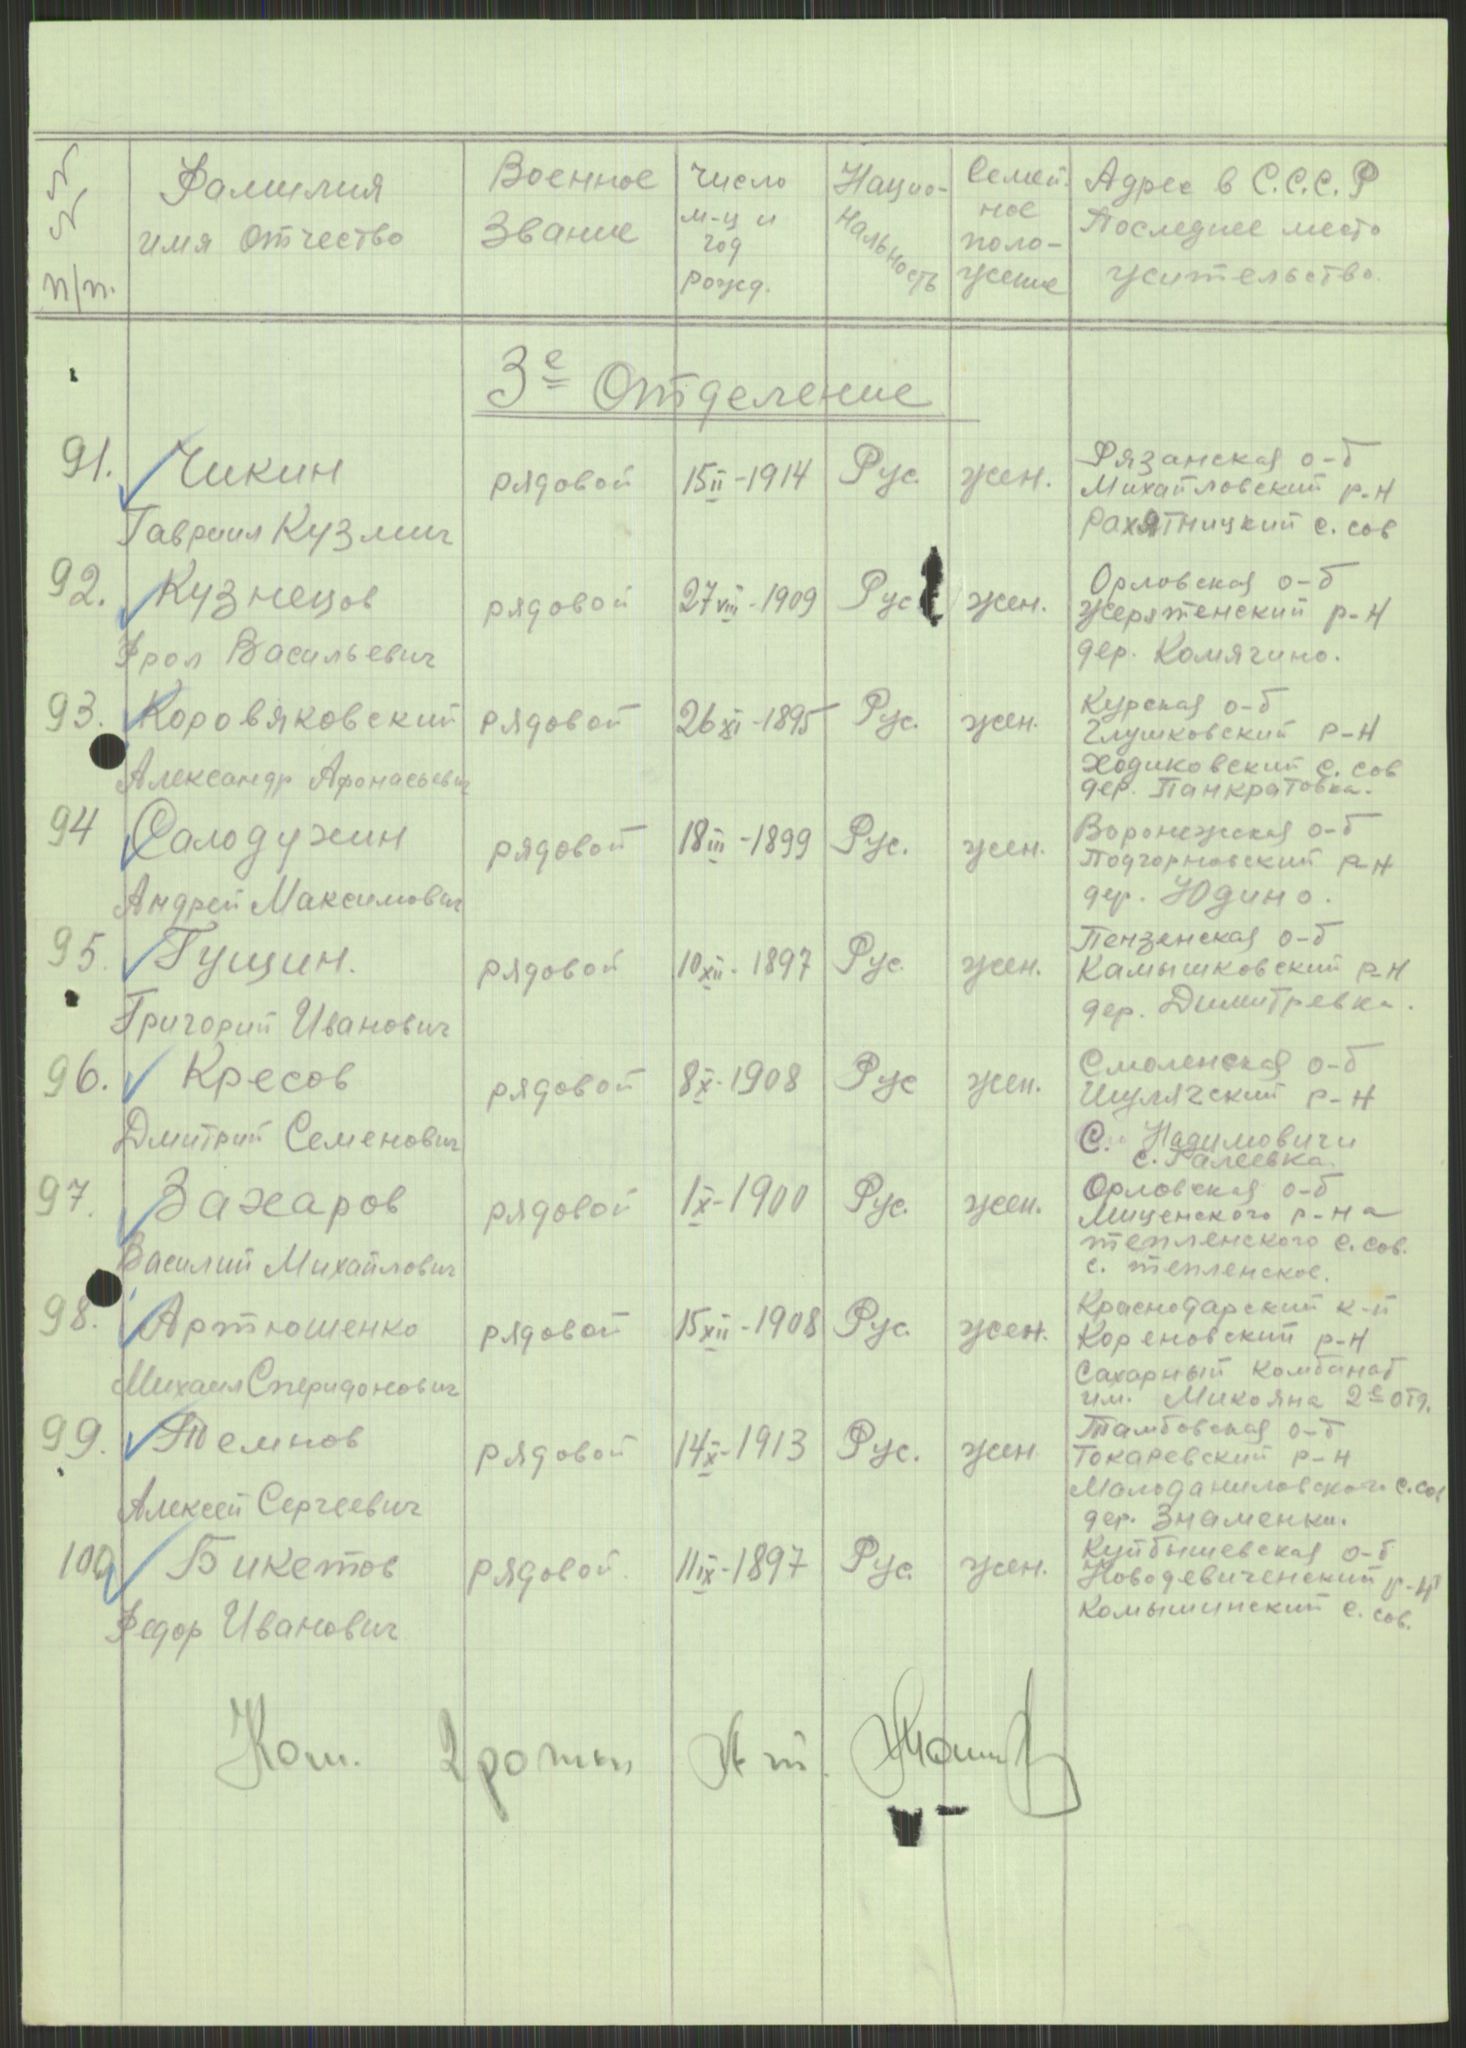 № № п/п.
Фамилия имя отчество
Военное Звание
число м-ц и год рожд.
Нацио-нальность
Семей. ное поло-жение
Адрес в С.С.С.Р Последнее место жительство.
3е Отделение
91. Чикин рядовой 15 II-1914 Рус. жен. Рязанская о-б
Михайловский р-н
Гавриил Кузмич Рахятницкий с. сов
92. Кузнецов рядовой 27 VIII-1909 Рус жен. Орловская о-б
р-н
Фрол Васильевич дер. Комягино.
93. Коровяковский рядовой 26 XI-1895 Рус. жен. Курская о-б
Глушковский р-н
Александр Афонасьевич Ходиковский с. сов
дер. Панкратовка.
94 Салодухин рядовой 18 III-1899 Рус. жен. Воронежская о-б
Подгорновский р-н
Андрей Максимович дер. Юдино.
95. Гущин. рядовой 10 XII-1897 Рус. жен. Пензенская о-б
Камышковский р-н
Григорий Иванович дер. Димитревка.
96. Кресов рядовой 8 X-1908 Рус жен. Смоленская о-б
р-н
Дмитрий Семенович С.
с. Галеевка.
97. Захаров рядовой 1 X-1900 Рус. жен. Орловская о-б
Миценского р-на
Василий Михайлович тепленского с. сов.
с. тепленское.
98. Артюшенко рядовой 15 XII-1908 Рус. жен. Краснодарский к-й
Кореновский р-н
Михаил Спиридонович Сахарный комбинат
им. Микояна 2е отд.
99. Темнов рядовой 14 X-1913 Рус. жен Тамбовская о-б
Токаревский р-н
Алексей Сергеевич Малоданиловского с. сов
дер. Знаменка.
100 Бикетов рядовой. 11 IX-1897 Рус. жен. Куйбышевская о-б
Новодевиченский р-н
Федор Иванович Комышинский с. сов.
Ком. 2 роты